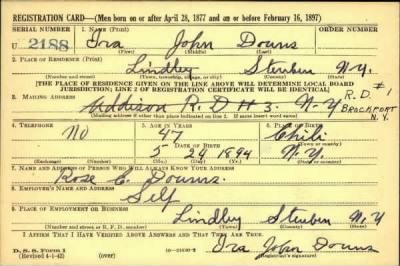 REGISTRATION CARD—(Men born on or after April 28, 1877 and on or before February 16, 1897)
SERIAL NUMBER 1. NAME (Print) ORDER NUMBER
U 2188 Ira John Douns
(First) (Middle) (Last)
2. PLACE OF RESIDENCE (Print)
Lindley Steuben N.Y.
(Number and street) (Town, township, village, or city) (County) (State)
[THE PLACE OF RESIDENCE GIVEN ON THE LINE ABOVE WILL DETERMINE LOCAL BOARD
JURISDICTION; LINE 2 OF REGISTRATION CERTIFICATE WILL BE IDENTICAL]
3. MAILING ADDRESS
Addison R.D # 3 - N-Y R.D. #1
BROCKPORT
N.Y.
[Mailing address if other than place indicated on line 2. If same insert word same]
4. TELEPHONE 5. AGE IN YEARS 6. PLACE OF BIRTH
No 47 Chili
DATE OF BIRTH (Town or county)
5 24 1894 N.Y.
(Exchange) (Number) (Mo.) (Day) (Yr.) (State or country)
7. NAME AND ADDRESS OF PERSON WHO WILL ALWAYS KNOW YOUR ADDRESS
Rose C. Douns
8. EMPLOYER'S NAME AND ADDRESS
Self
9. PLACE OF EMPLOYMENT OR BUSINESS
Lindley Steuben N.Y
(Number and street or R. F. D. number) (Town) (County) (State)
I AFFIRM THAT I HAVE VERIFIED ABOVE ANSWERS AND THAT THEY ARE TRUE.
D. S. S. Form 1
(Revised 4-1-42) (over) Ira John Douns
(Registrant's signature)